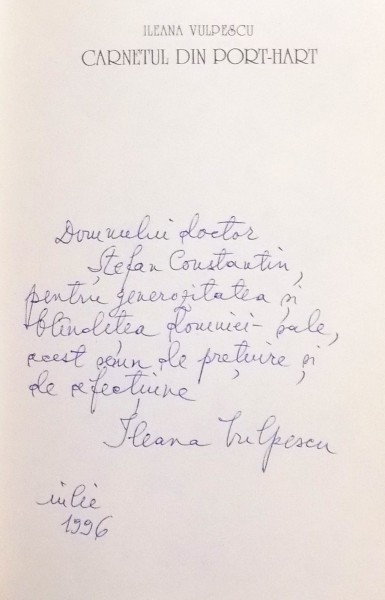 ILEANA VULPESCU
CARNETUL DIN PORT-HART
Domnului doctor
Ștefan Constantin,
pentru generozitatea și
blîndețea Domniei-sale,
acest semn de prețuire și
de afecțiune
Ileana Vulpescu
iulie
1996